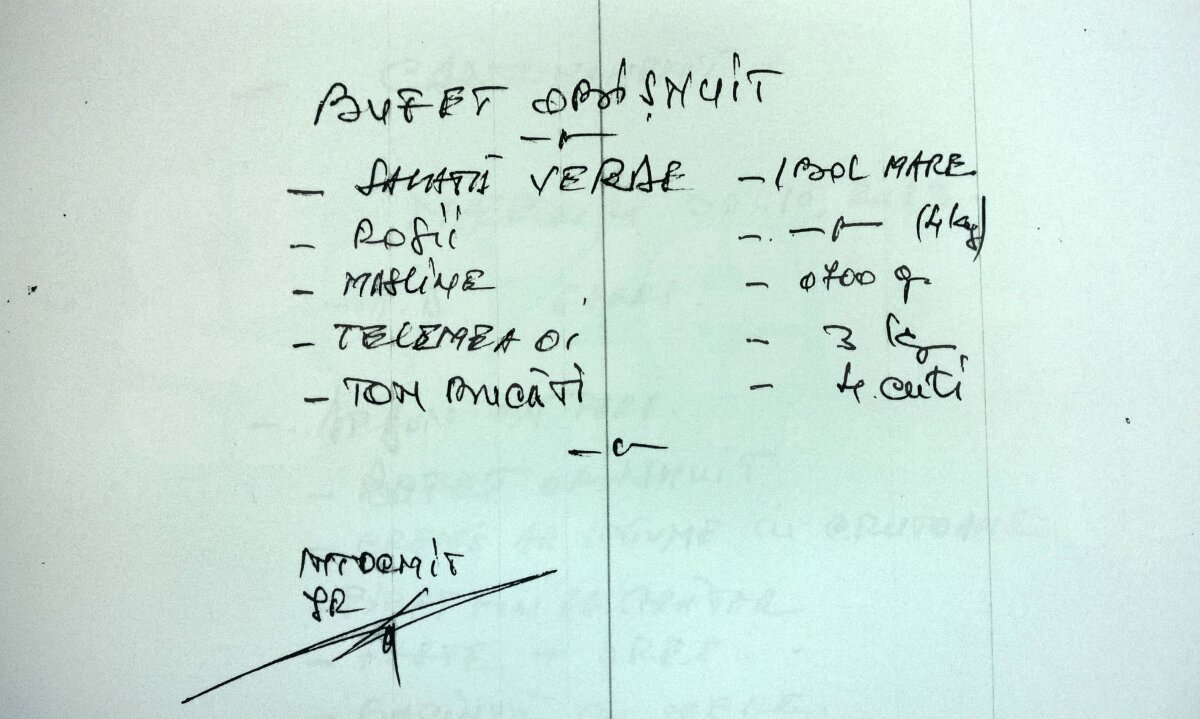 BUFET OBIȘNUIT
— SALATĂ VERDE — 1 BOL MARE
— ROȘII — —"— (4 kg)
— MASLINE — 0700 g
— TELEMEA OI — 3 kg
— TON BUCĂȚI — 4 cutii
—"—
INTOCMIT